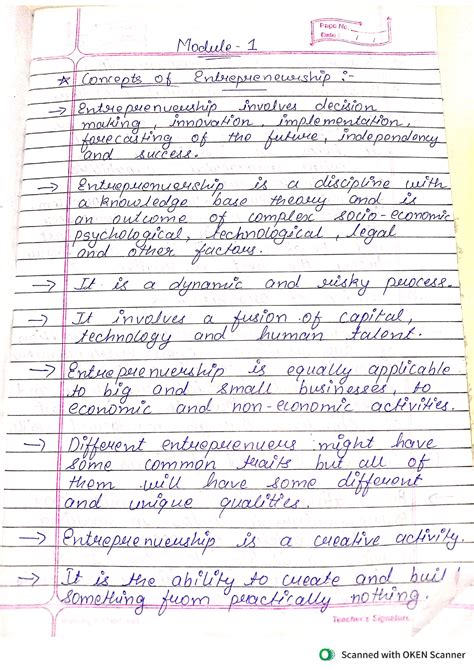 Page No.
Date
Module - 1
* Concepts of Entrepreneurship :-
→ Entrepreneurship involves decision
making, innovation, implementation,
forecasting of the future, independency
and success.
→ Entrepreneurship is a discipline with
a knowledge base theory and is
an outcome of complex socio-economic
psychological, technological, legal
and other factors.
→ It is a dynamic and risky process.
→ It involves a fusion of capital,
technology and human talent.
→ Entrepreneurship is equally applicable
to big and small businesses, to
economic and non-economic activities.
→ Different entrepreneurs might have
some common traits but all of
them will have some different
and unique qualities.
→ Entrepreneurship is a creative activity.
→ It is the ability to create and buil
something from practically nothing.
Teacher's Signature
Scanned with OKEN Scanner